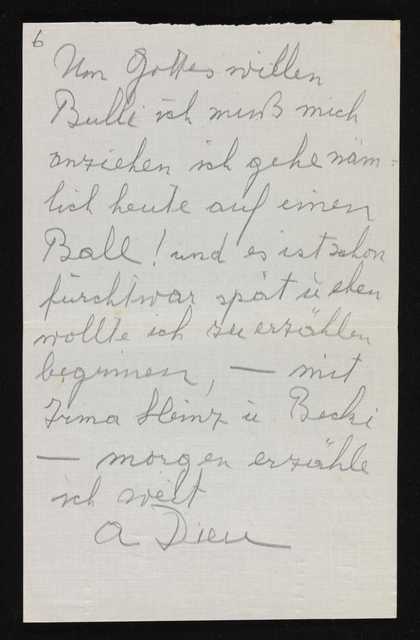 6
Um Gottes willen
Bulli ich muß mich
anziehen ich gehe näm-
lich heute auf einen
Ball! und es ist schon
fürchtbar spät u eben
wollte ich zu erzählen
beginnen, — mit
Irma Heinz u Becki
— morgen erzähle
ich weit
A Dieu